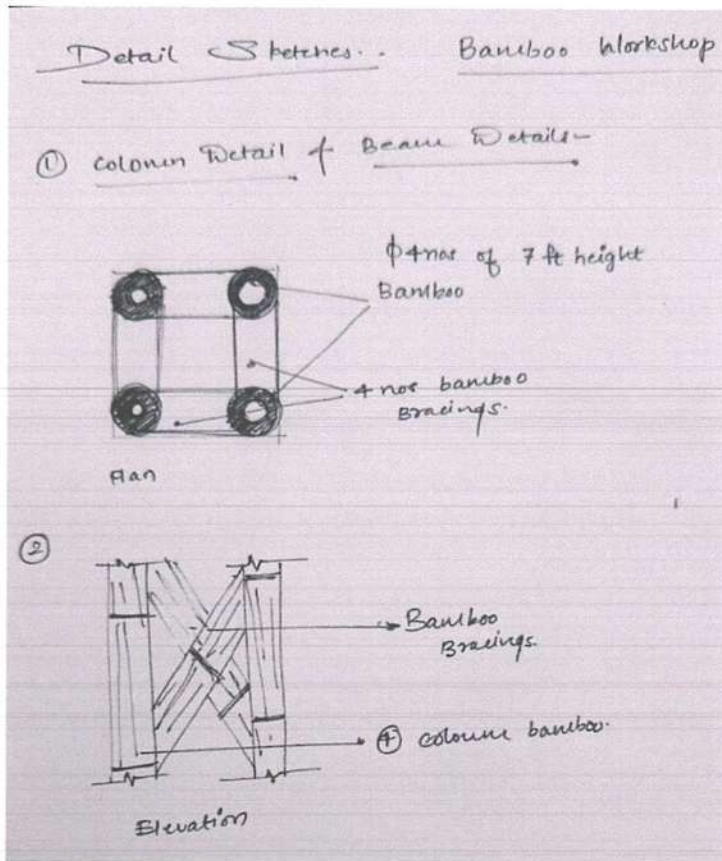 Detail Sketches.. Bamboo Workshop
① Colomn Detail & Beam Details-
φ4nos of 7 ft height
Bamboo
4 nos bamboo
Bracings.
Plan
②
Bamboo
Bracings.
④ Coloumn bamboo.
Elevation